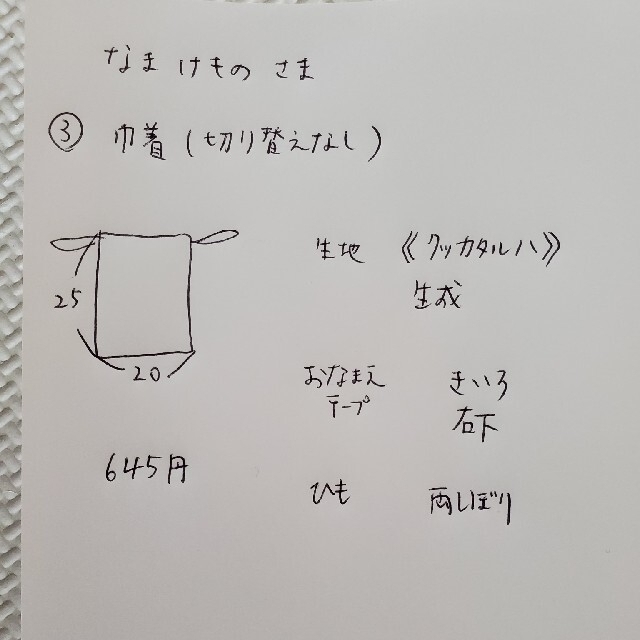 なまけもの さま
③ 巾着(切り替えなし)
25
20
645円
生地 《クッカタルハ》
生成
おなまえ
テープ
きいろ
右下
ひも 両しぼり